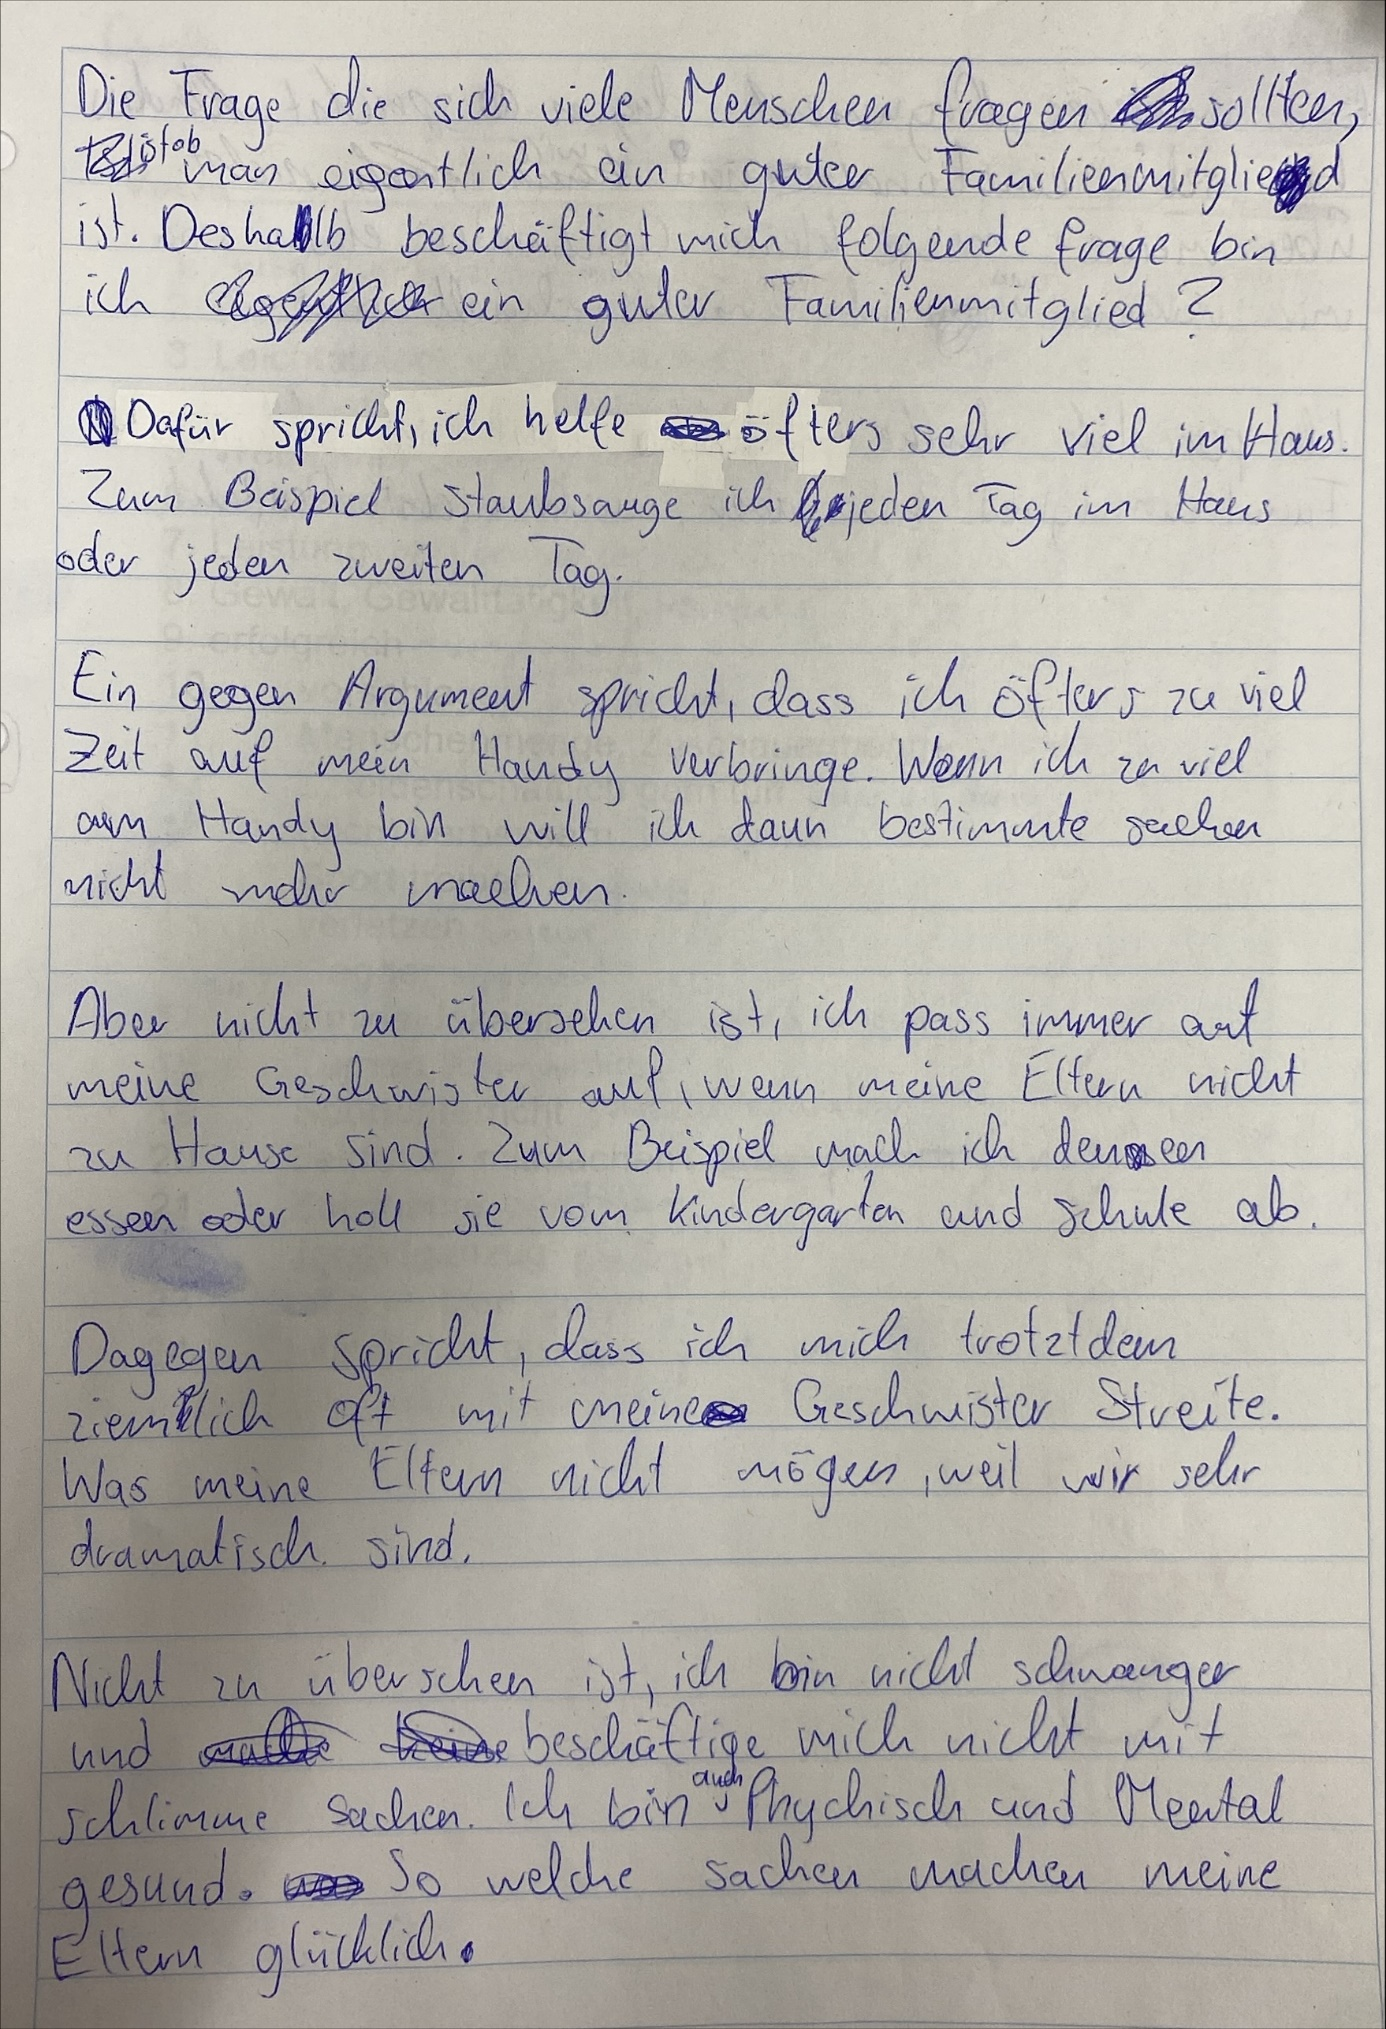 Die Frage die sich viele Menschen fragen sollten,
ist ob man eigentlich ein guter Familienmitglied
ist. Deshalb beschäftigt mich folgende frage bin
ich ein guter Familienmitglied?
Dafür spricht, ich helfe öfters sehr viel im Haus.
Zum Beispiel staubsauge ich jeden Tag im Haus
oder jeden zweiten Tag.
Ein gegen Argument spricht, dass ich öfters zu viel
Zeit auf mein Handy verbringe. Wenn ich zu viel
am Handy bin will ich dann bestimmte sachen
nicht mehr machen.
Aber nicht zu übersehen ist, ich pass immer auf
meine Geschwister auf, wenn meine Eltern nicht
zu Hause sind. Zum Beispiel mach ich denen
essen oder holl sie vom Kindergarten und schule ab.
Dagegen spricht, dass ich mich trotztdem
ziemlich oft mit meine Geschwister Streite.
Was meine Eltern nicht mögen, weil wir sehr
dramatisch sind.
Nicht zu übersehen ist, ich bin nicht schwanger
und beschäftige mich nicht mit
schlimme sachen. Ich bin auch Phychisch und Mental
gesund. So welche sachen machen meine
Eltern glücklich.